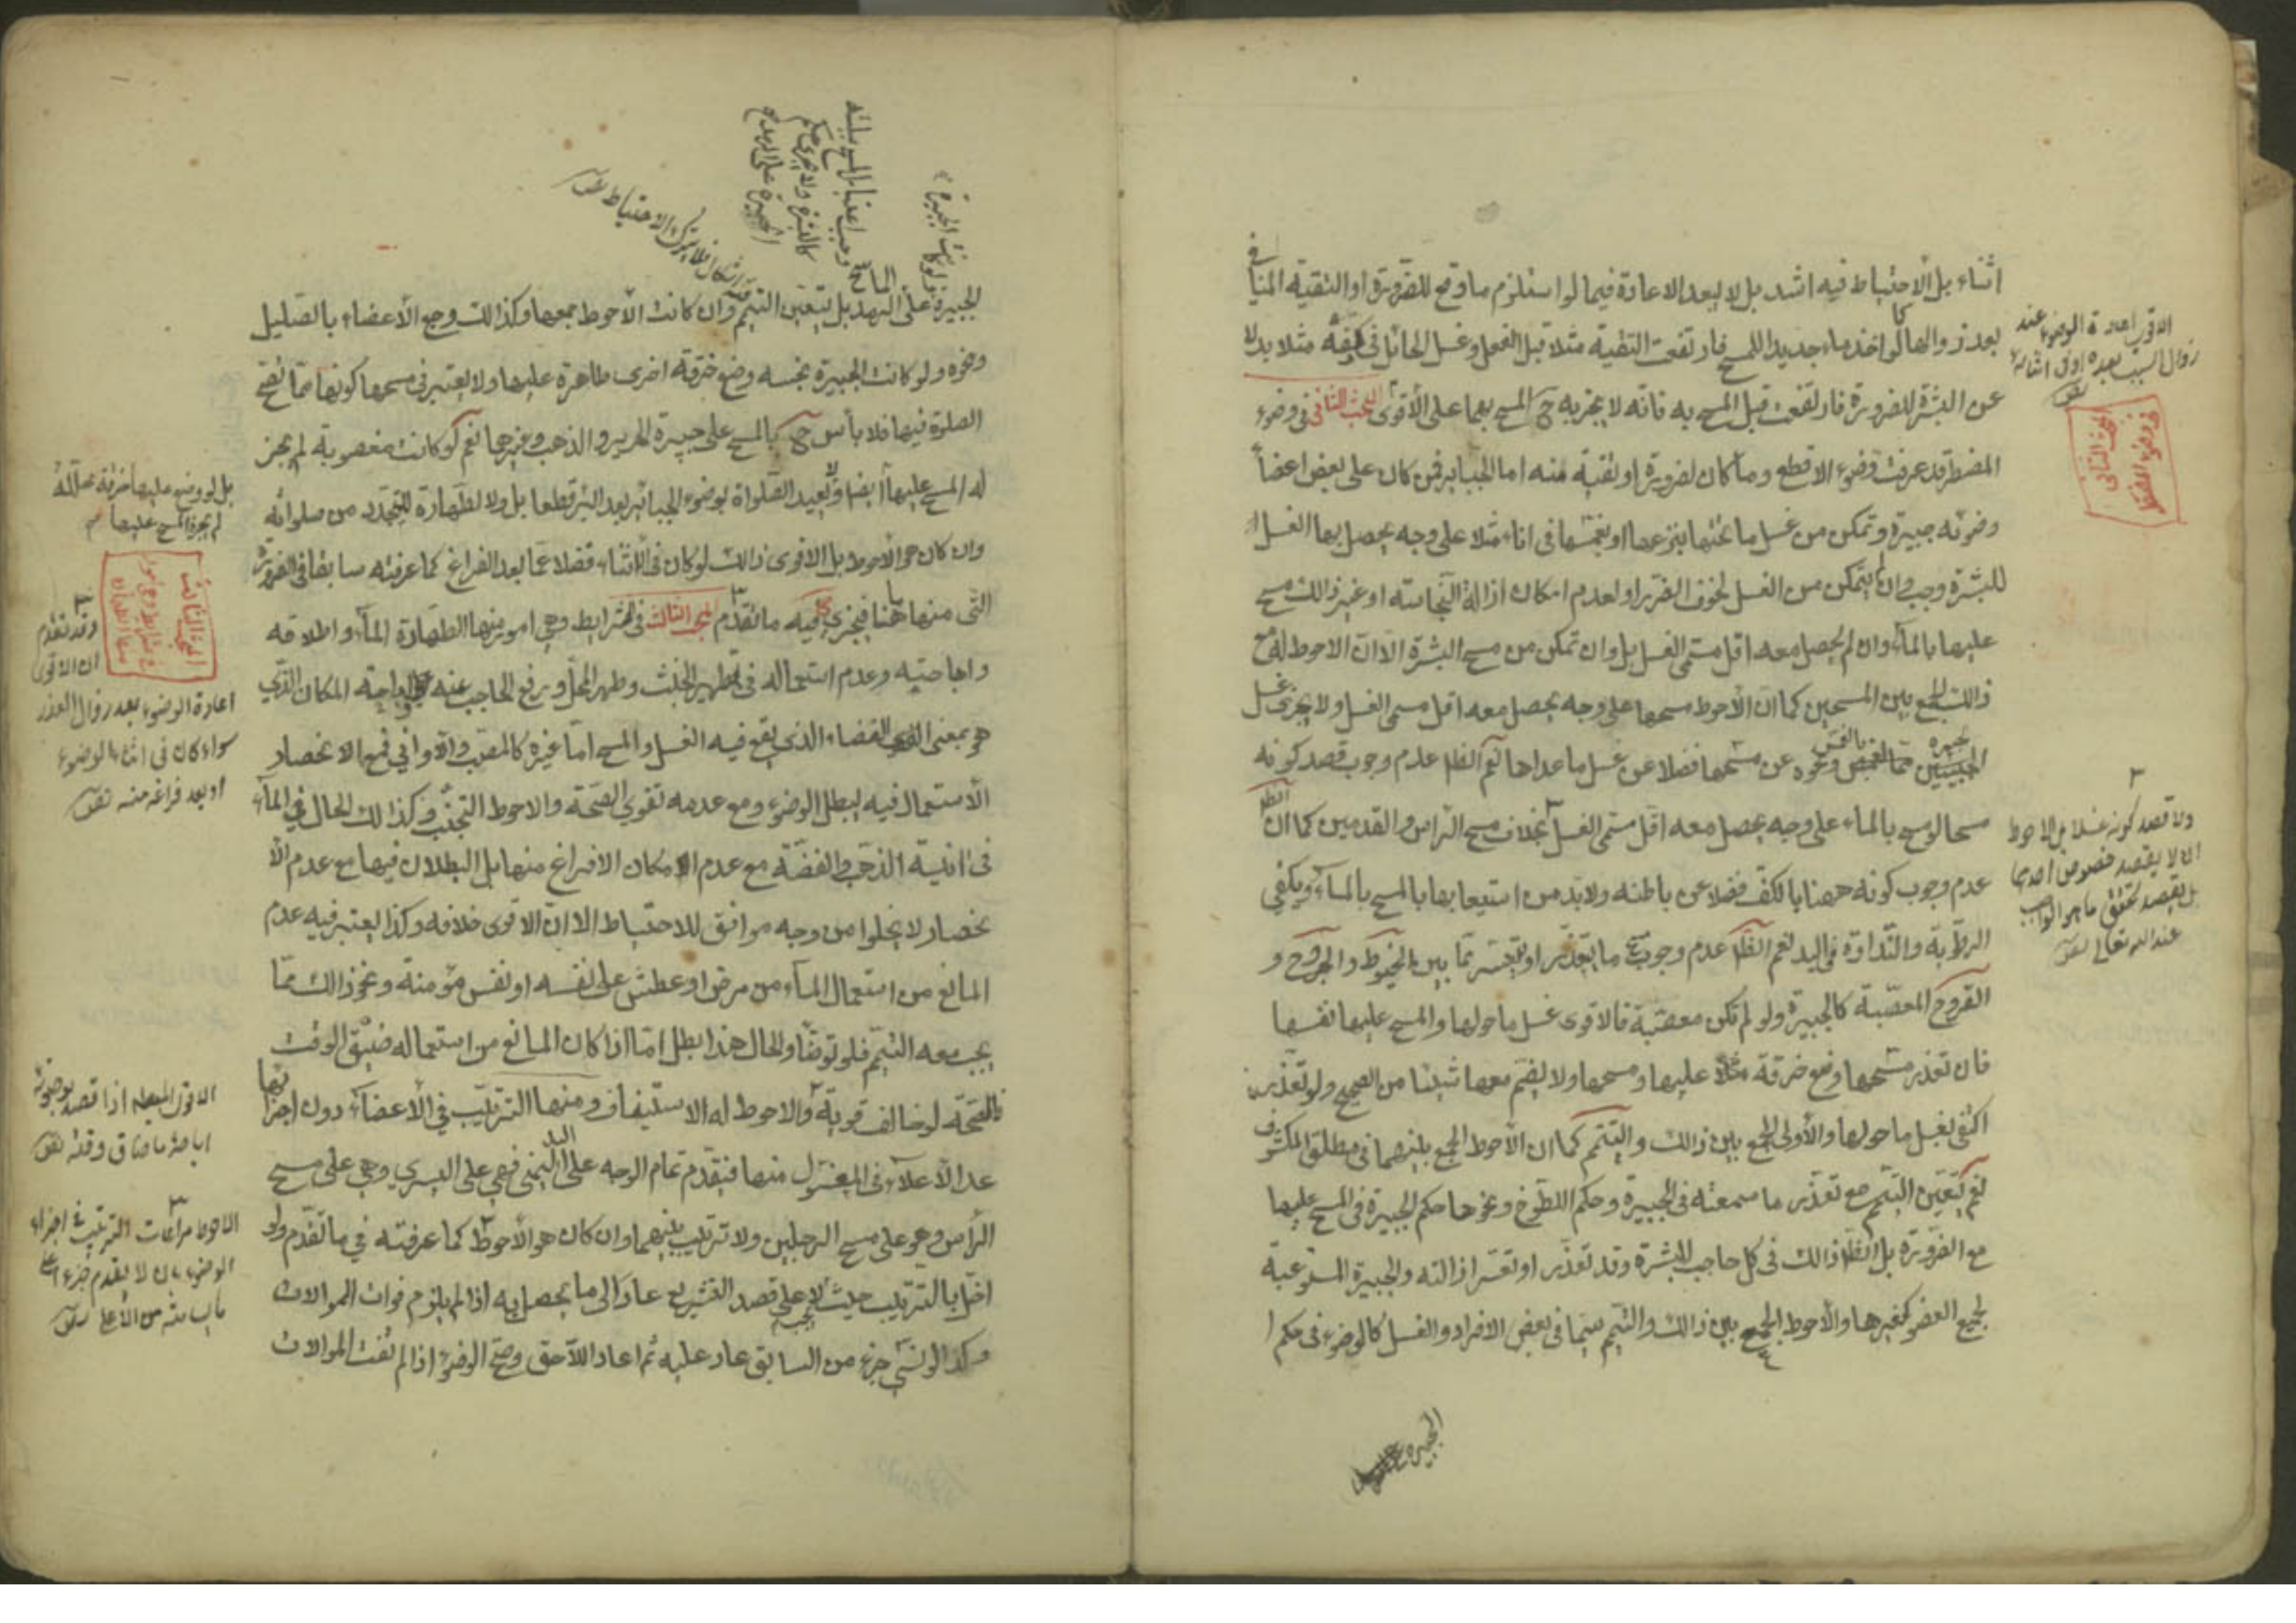 اثناء بل الاحتياط فيه اشد بل لا يبعد الاعادة فيما لو استلزم ما وقع للضرورة او التقية المنافي
بعد زوالها كما لو اخذ ماء جديد اللمسح فارتفعت التقية مثلا قبل الفعل وغسل الحائل في كفه مثلا بدلا
عن البشرة للضرورة فارتفعت قبل المسح به فانه لا يجزيه ح المسح بهما على الأقوى المبحث الثاني في وضوء
المضطر قد عرفت وضوء الاقطع وما كان لضرورة او تقية منه اما الجبائر فمن كان على بعض اعضاء
وضوئه جبيرة وتمكن من غسل ما تحتها بنزعها او بغمسها في اناء مثلا على وجه يحصل بها الغسل
للبشرة وجب وان لم يتمكن من الغسل لخوف الضرر او لعدم امكان ازالة النجاسة او غير ذالك مسح
عليها بالماء وان لم يحصل معه اقل مسمى الغسل بل وان تمكن من مسح البشرة الا ان الاحوط له ح
ذالك الجمع بين المسحين كما ان الأحوط مسحها على وجه يحصل معه اقل مسمى الغسل ولا يجزي غسل
الجبيرة عن مسحها فضلا عن غسل ما عداها نعم الظا عدم وجوب قصد كونه
مسحا لو مسح بالماء على وجه يحصل معه اقل مسمى الغسل بخلاف مسح الراس والقدمين كما ان الظا
عدم وجوب كونه هنا بالكف فضلا عن باطنه ولا بد من استيعابها بالمسح بالماء ويكفي
الرطوبة والنداوة في اليد نعم الظا عدم وجوب مسح ما يتعذر او يتعسر مما بين الخيوط والجروح و
القروح المعصبة كالجبيرة ولو لم تكن معصبة فالاقوى غسل ما حولها والمسح عليها نفسها
فان تعذر مسحها وضع خرقة مثلا عليها ومسحها ولا يضم معها شيئا من الصحيح ولو تعذر
اكتفى بغسل ما حولها والأولى الجمع بين ذالك والتيمم كما ان الأحوط الجمع بينهما في مطلق المكشوف
نعم يتعين التيمم مع تعذر ما سمعته في الجبيرة وحكم اللطوخ ونحوها حكم الجبيرة في المسح عليها
مع الضرورة بل الظا ذالك في كل حاجب للبشرة وقد تعذر او تعسر ازالته والجبيرة المستوعبة
لجميع العضو كغيرها والأحوط الجمع بين ذالك والتيمم سيما في بعض الافراد والغسل كالوضوء في حكم
الاقوى اعادة الوضوء عند
زوال السبب بعده او في اثنائه
المبحث الثاني
في وضوء المضطر
ولا قصد كونه غسلا بل الاحوط
ان لا يقصد خصوص احدهما
بل يقصد تحقق ما هو الواجب
عند الله تعالى
الجبيرة
الجبيرة على الرمد بل يتعين التيمم وان كانت الأحوط جمعها وكذالك وجع الأعضاء بالصليل
ونحوه ولو كانت الجبيرة نجسه وضع خرقة اخرى طاهرة عليها ولا يعتبر في مسحها كونها مما تصح
الصلوة فيها فلا بأس ح بالمسح على جبيرة الحرير والذهب وغيرها نعم لو كانت مغصوبة لم يجز
له المسح عليها ايضا ولا يعيد الصلواة بوضوء الجبائر بعد البرء قطعا بل ولا لطهارة للمتجدد من صلواته
وان كان هو الأحوط بل الاقوى ذالك لو كان في الأثناء فضلا عما بعد الفراغ كما عرفته سابقا في الضرورة
التي منها هنا فيجزي فيه ما تقدم المبحث الثالث في الشرايط وهي امور منها الطهارة الماء واطلاقه
واباحتيه وعدم استعماله في تطهير الخبث وطهر المحل ورفع الحاجب عنه واباحة المكان الذي
هو بمعنى الفضاء الذي يقع فيه الغسل والمسح اما غيره كالمصب والاواني فمع الانحصار
الأستعمال فيه يبطل الوضوء ومع عدمه تقوي الصحة والاحوط التجنب وكذالك الحال في الماء
في انية الذهب والفضة مع عدم امكان الافراغ منها بل البطلان فيها مع عدم الا
نحصار لا يخلوا من وجه موافق للاحتياط الا ان الاقوى خلافه وكذا يعتبر فيه عدم
المانع من استعمال الماء من مرض او عطش على نفسه او نفس مؤمنة ونحو ذالك مما
يجب معه التيمم فلو توضأ والحال هذا بطل اما اذا كان المانع من استعماله ضيق الوقت
فالصحة لو خالف قوية والاحوط له الاستيناف ومنها الترتيب في الأعضاء دون اجزائها
عدا الأعلاء في المغسول منها فيقدم تمام الوجه على اليد اليمنى وهي على اليسرى وهي على مسح
الرأس وهو على مسح الرجلين ولا ترتيب بينهما وان كان هو الأحوط كما عرفته في ما تقدم ولو
اخل بالترتيب حيث لا على قصد التشريع عاد الى ما يحصل به اذا لم يلزم فوات الموالات
وكذا لو نسي جزء من السابق عاد عليه ثم اعاد اللاحق وصح الوضوء اذا لم تفت الموالات
ولو كانت الجبيرة
كالبشرة ولا يجري حكم
الجبيرة على الرمد
اشكال فلا يترك الاحتياط
بل لو وضع عليها خرقة محللة
لم يجز المسح عليها
المبحث الثالث
وقد تقدم
ان الاقوى
اعادة الوضوء بعد زوال العذر
سواء كان في اثناء الوضوء
او بعد فراغه منه
الاقوى البطلان اذا قصد بوضوئه
اباحة ما ضاق وقته
الاحوط مراعات الترتيب في اجزاء
الوضوء بان لا يقدم جزء